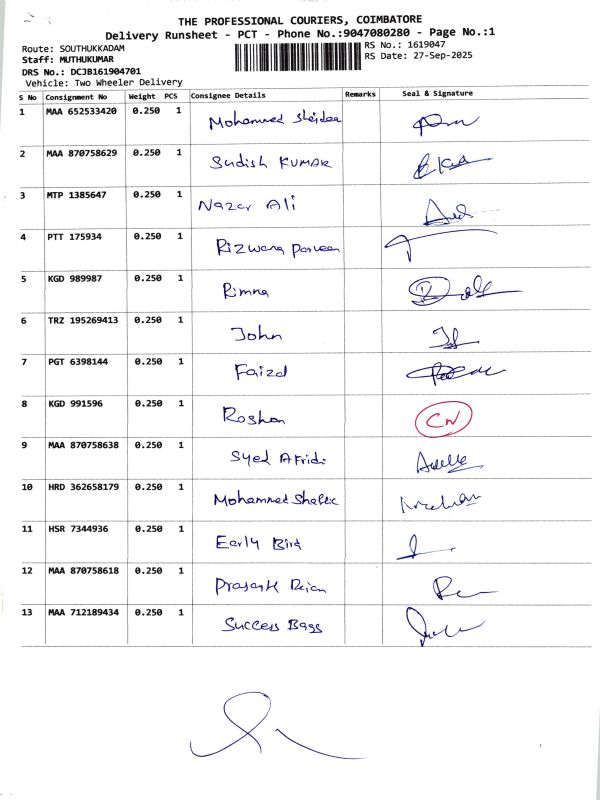 THE PROFESSIONAL COURIERS, COIMBATORE
Delivery Runsheet - PCT - Phone No.:9047080280 - Page No.:1
Route: SOUTHUKKADAM
RS No.: 1619047
Staff: MUTHUKUMAR
RS Date: 27-Sep-2025
DRS No.: DCJB161904701
Vehicle: Two Wheeler Delivery
S No Consignment No Weight PCS Consignee Details Remarks Seal & Signature
1 MAA 652533420 0.250 1 Mohammed
2 MAA 870758629 0.250 1 Sudish KUMAR
3 MTP 1385647 0.250 1 Nazar Ali
4 PTT 175934 0.250 1 Rizwana Parveen
5 KGD 989987 0.250 1 Rimna
6 TRZ 195269413 0.250 1 John
7 PGT 6398144 0.250 1 Faizal
8 KGD 991596 0.250 1 Roshan CN
9 MAA 870758638 0.250 1 Syed Afridi
10 HRD 362658179 0.250 1 Mohammed
11 HSR 7344936 0.250 1 Early Bird
12 MAA 870758618 0.250 1 Prasanth
13 MAA 712189434 0.250 1 Success Bags